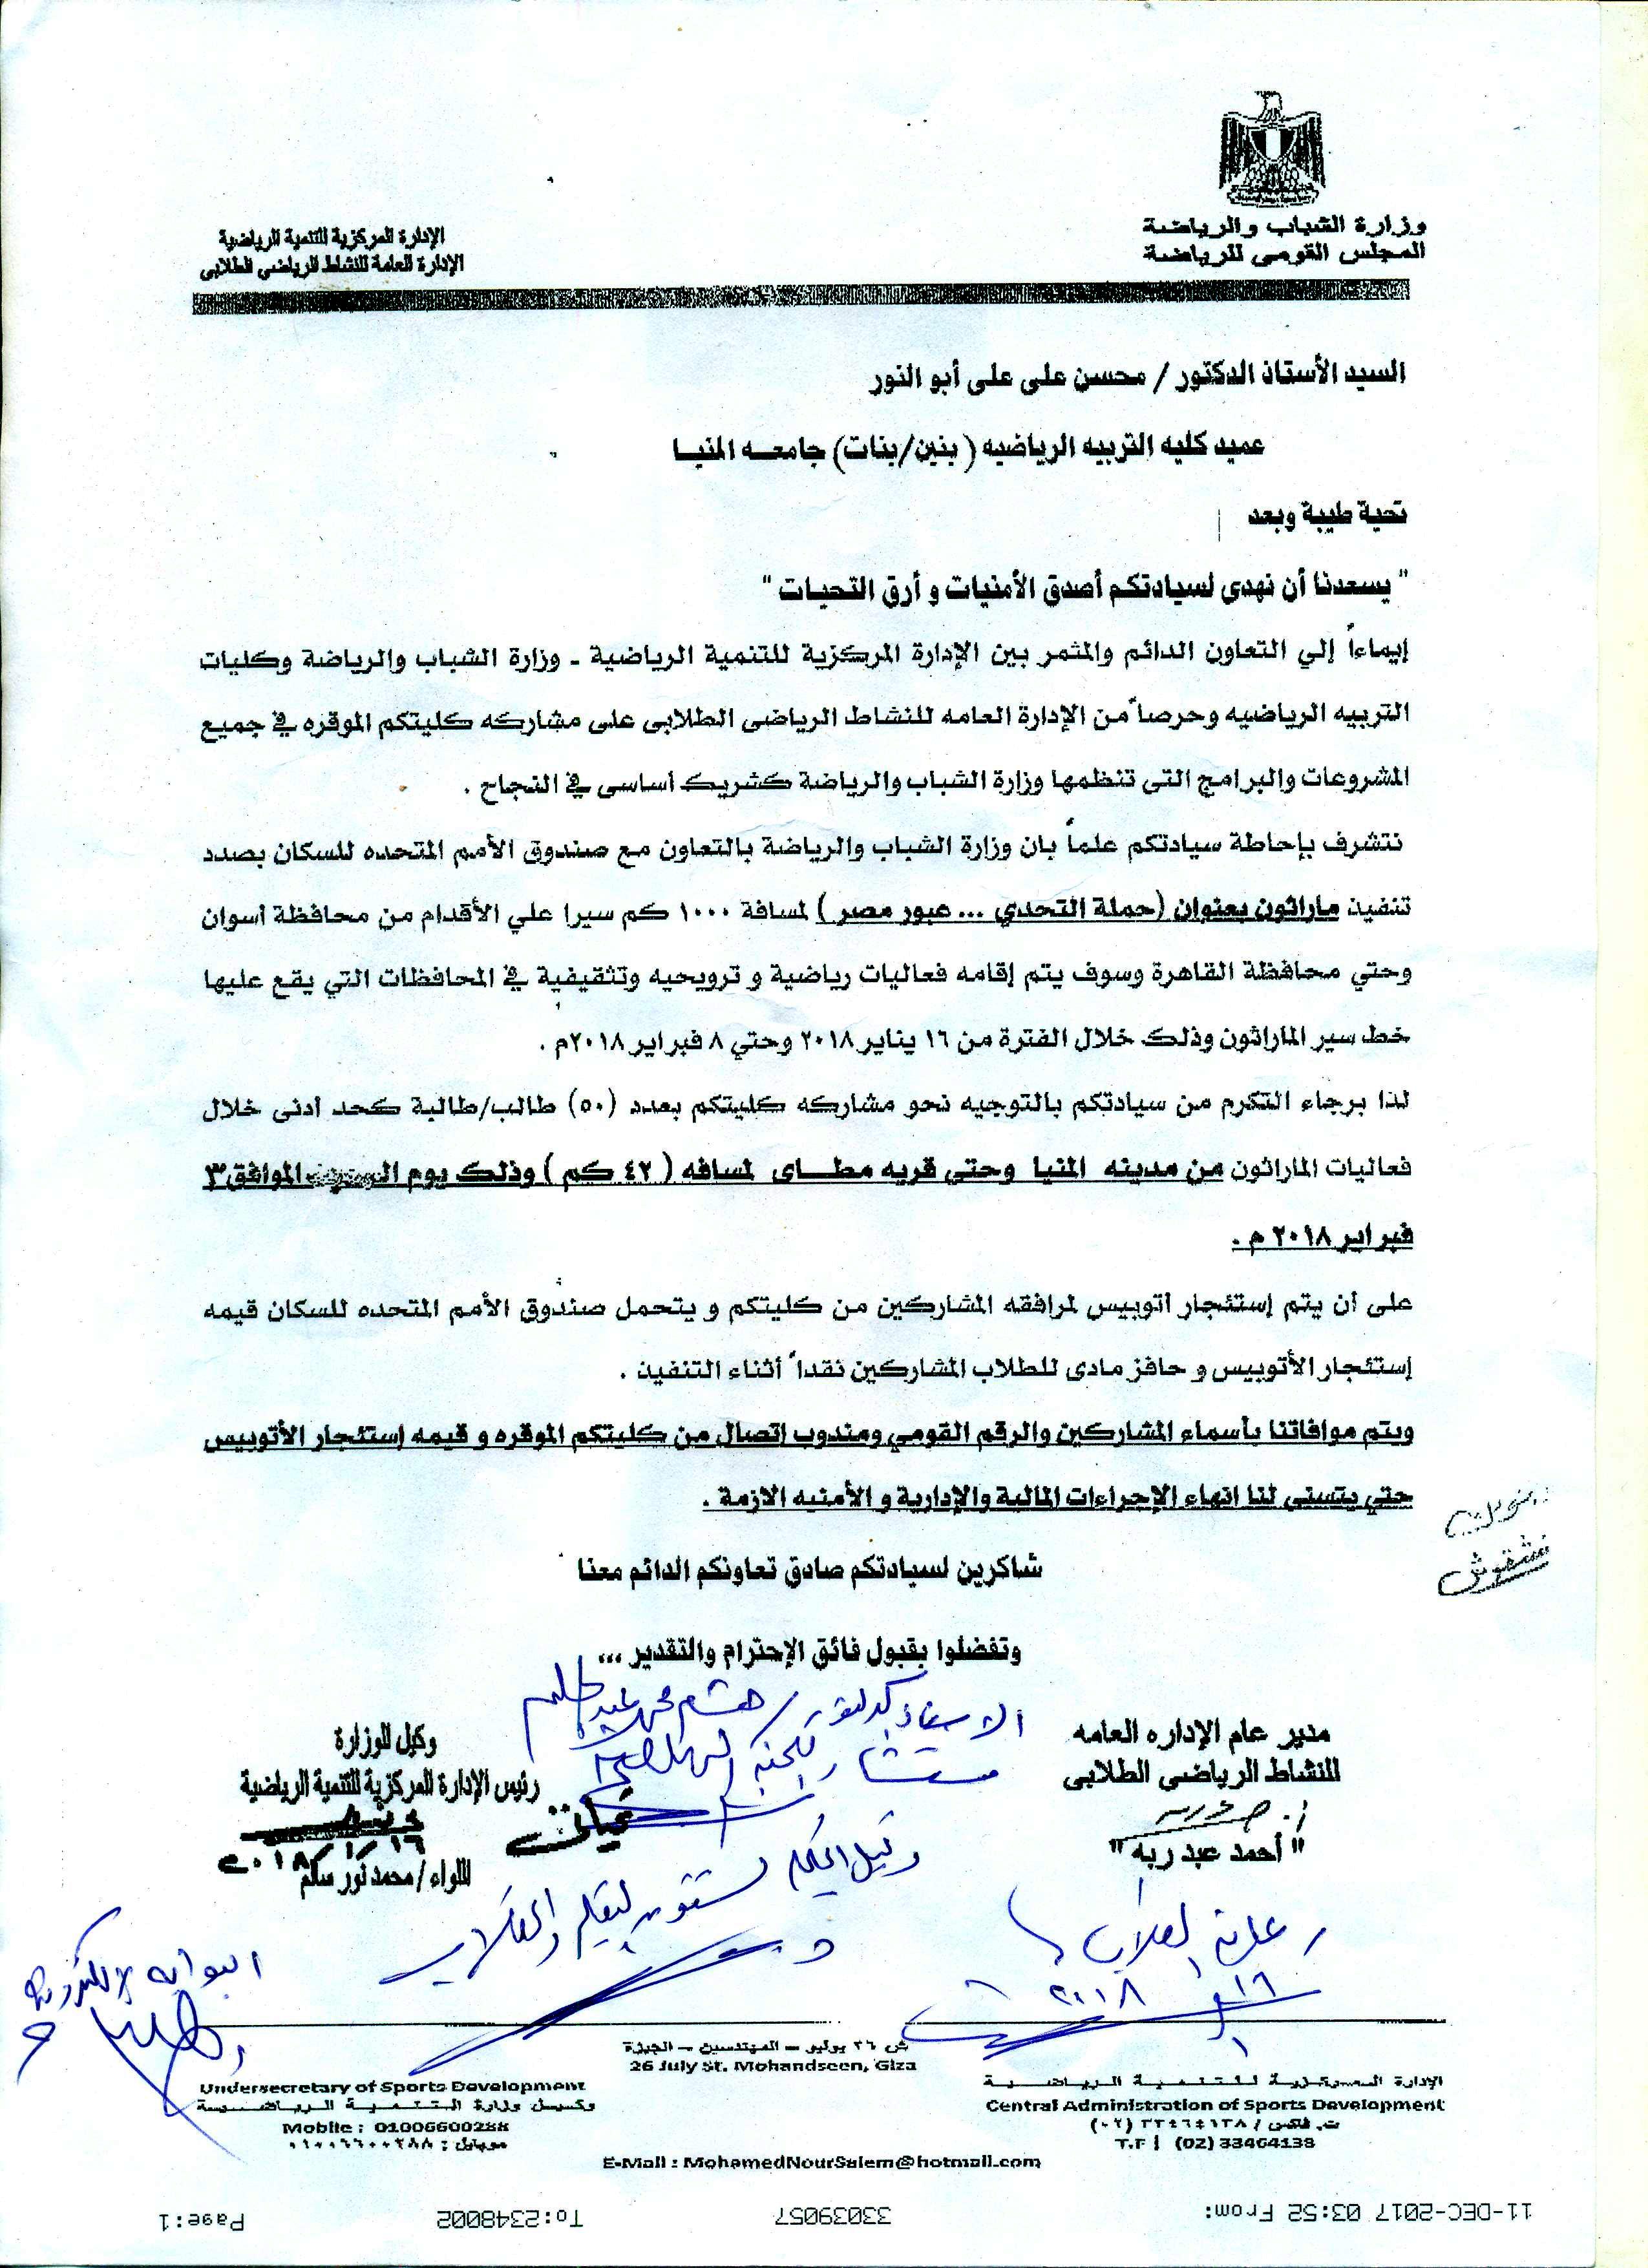 وزارة الشباب والرياضة
المجلس القومى للرياضة
الإدارة المركزية للتنمية الرياضية
الإدارة العامة للنشاط الرياضى الطلابى
السيد الأستاذ الدكتور / محسن على على أبو النور
عميد كليه التربيه الرياضيه (بنين/بنات) جامعه المنيا
تحية طيبة وبعد
" يسعدنا أن نهدى لسيادتكم أصدق الأمنيات و أرق التحيات "
إيماءاً إلي التعاون الدائم والمثمر بين الإدارة المركزية للتنمية الرياضية - وزارة الشباب والرياضة وكليات
التربيه الرياضيه وحرصاً من الإدارة العامه للنشاط الرياضى الطلابى على مشاركه كليتكم الموقره في جميع
المشروعات والبرامج التى تنظمها وزارة الشباب والرياضة كشريك أساسى في النجاح .
نتشرف بإحاطة سيادتكم علماً بان وزارة الشباب والرياضة بالتعاون مع صندوق الأمم المتحده للسكان بصدد
تنفيذ ماراثون بعنوان (حملة التحدي ... عبور مصر ) لمسافة ١٠٠٠ كم سيرا علي الأقدام من محافظة أسوان
وحتي محافظة القاهرة وسوف يتم إقامه فعاليات رياضية و ترويحيه وتثقيفية في المحافظات التي يقع عليها
خط سير الماراثون وذلك خلال الفترة من ١٦ يناير ٢٠١٨ وحتي ٨ فبراير ٢٠١٨م .
لذا برجاء التكرم من سيادتكم بالتوجيه نحو مشاركه كليتكم بعدد (٥٠) طالب/طالبة كحد أدنى خلال
فعاليات الماراثون من مدينه المنيا وحتي قريه مطاى لمسافه ( ٤٢ كم ) وذلك يوم الموافق ٣
فبراير ٢٠١٨ م .
على أن يتم إستئجار أتوبيس لمرافقه المشاركين من كليتكم و يتحمل صندوق الأمم المتحده للسكان قيمه
إستئجار الأتوبيس و حافز مادى للطلاب المشاركين نقداً أثناء التنفيذ .
ويتم موافاتنا بأسماء المشاركين والرقم القومي ومندوب إتصال من كليتكم الموقره و قيمه إستئجار الأتوبيس
حتي يتسنى لنا انهاء الإجراءات المالية والإدارية و الأمنيه الازمة .
شاكرين لسيادتكم صادق تعاونكم الدائم معنا
وتفضلوا بقبول فائق الإحترام والتقدير ...
مدير عام الإداره العامه
للنشاط الرياضى الطلابى
" أحمد عبد ربه "
وكيل الوزارة
رئيس الإدارة المركزية للتنمية الرياضية
٢٠١٨/١/١٦
اللواء / محمد نور سالم
رعاية الطلاب
ش ٢٦ يوليو - المهندسين - الجيزة
26 July St. Mohandseen, Giza
Undersecretary of Sports Development
وكيل وزارة التنمية الرياضية
Mobile : 01006600288
موبايل : ٠١٠٠٦٦٠٠٢٨٨
الإدارة المركزية للتنمية الرياضية
Central Administration of Sports Development
ت. فاكس / ٣٣٤٦٤١٣٨ (٠٢)
T.F | (02) 33464138
E-Mail : MohamedNourSalem@hotmail.com
11-DEC-2017 03:52 From: 33039057 To:2348002 Page:1